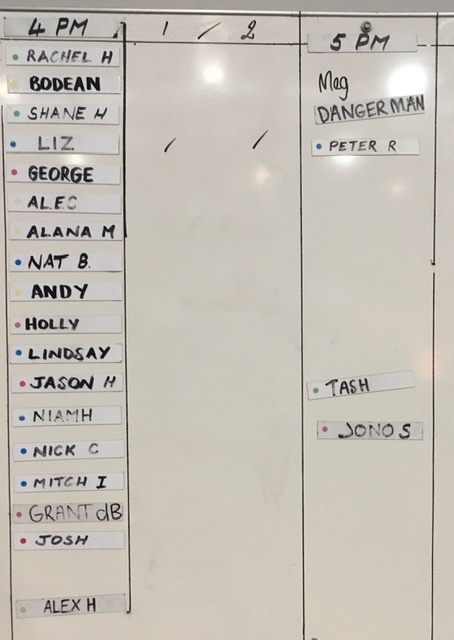 4 PM
1 / 2
RACHEL H
BODEAN
SHANE H
LIZ / /
GEORGE
ALEC
ALANA M
NAT B.
ANDY
HOLLY
LINDSAY
JASON H
NIAMH
NICK C
MITCH I
GRANT dB
JOSH
ALEX H
5 PM
Meg
DANGERMAN
PETER R
TASH
JONO S